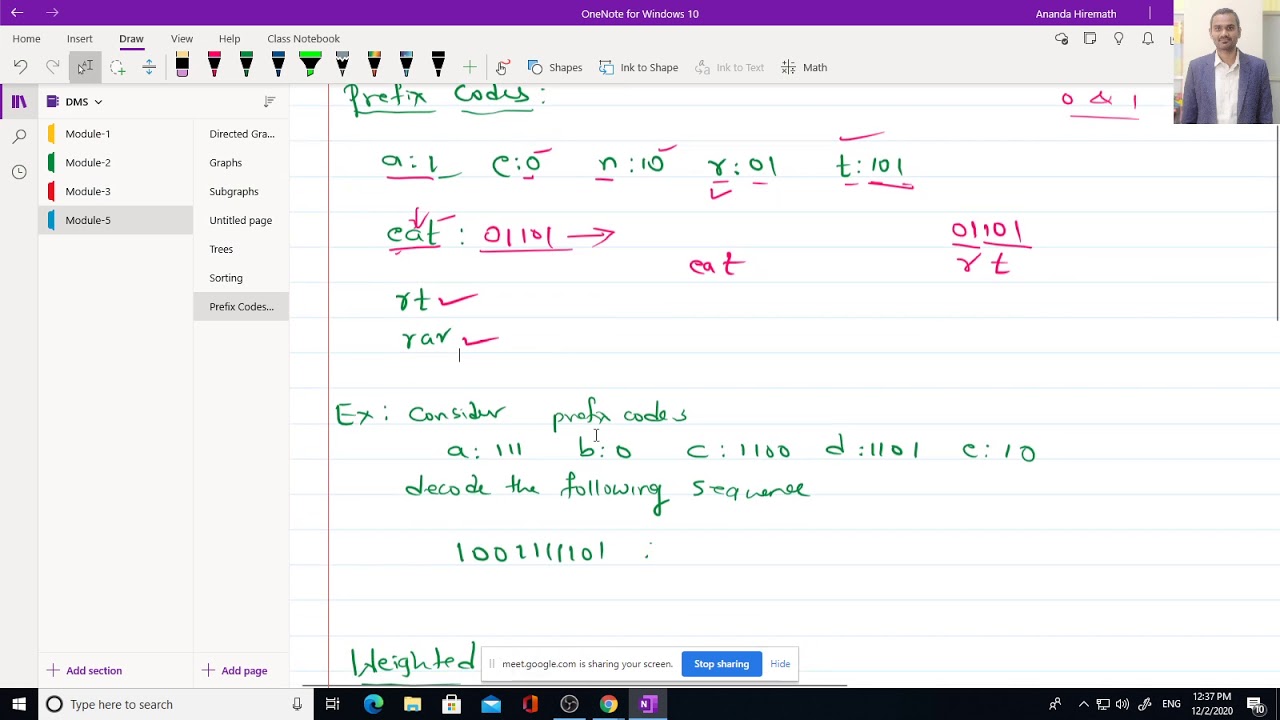 OneNote for Windows 10
Ananda Hiremath
Home Insert Draw View Help Class Notebook
Shapes Ink to Shape Ink to Text Math
DMS
Module-1
Module-2
Module-3
Module-5
Directed Gra...
Graphs
Subgraphs
Untitled page
Trees
Sorting
Prefix Codes...
Prefix Codes:
0 & 1
a:1 e:0 n:10 r:01 t:101
eat: 01101 →
01101
eat
r t
rt ✓
rar ✓
Ex: Consider prefix codes
a:111 b:0 c:1100 d:1101 e:10
decode the following sequence
1001111101 :
Weighted
meet.google.com is sharing your screen. Stop sharing Hide
+ Add section
+ Add page
Type here to search
ENG
12:37 PM
12/2/2020
10